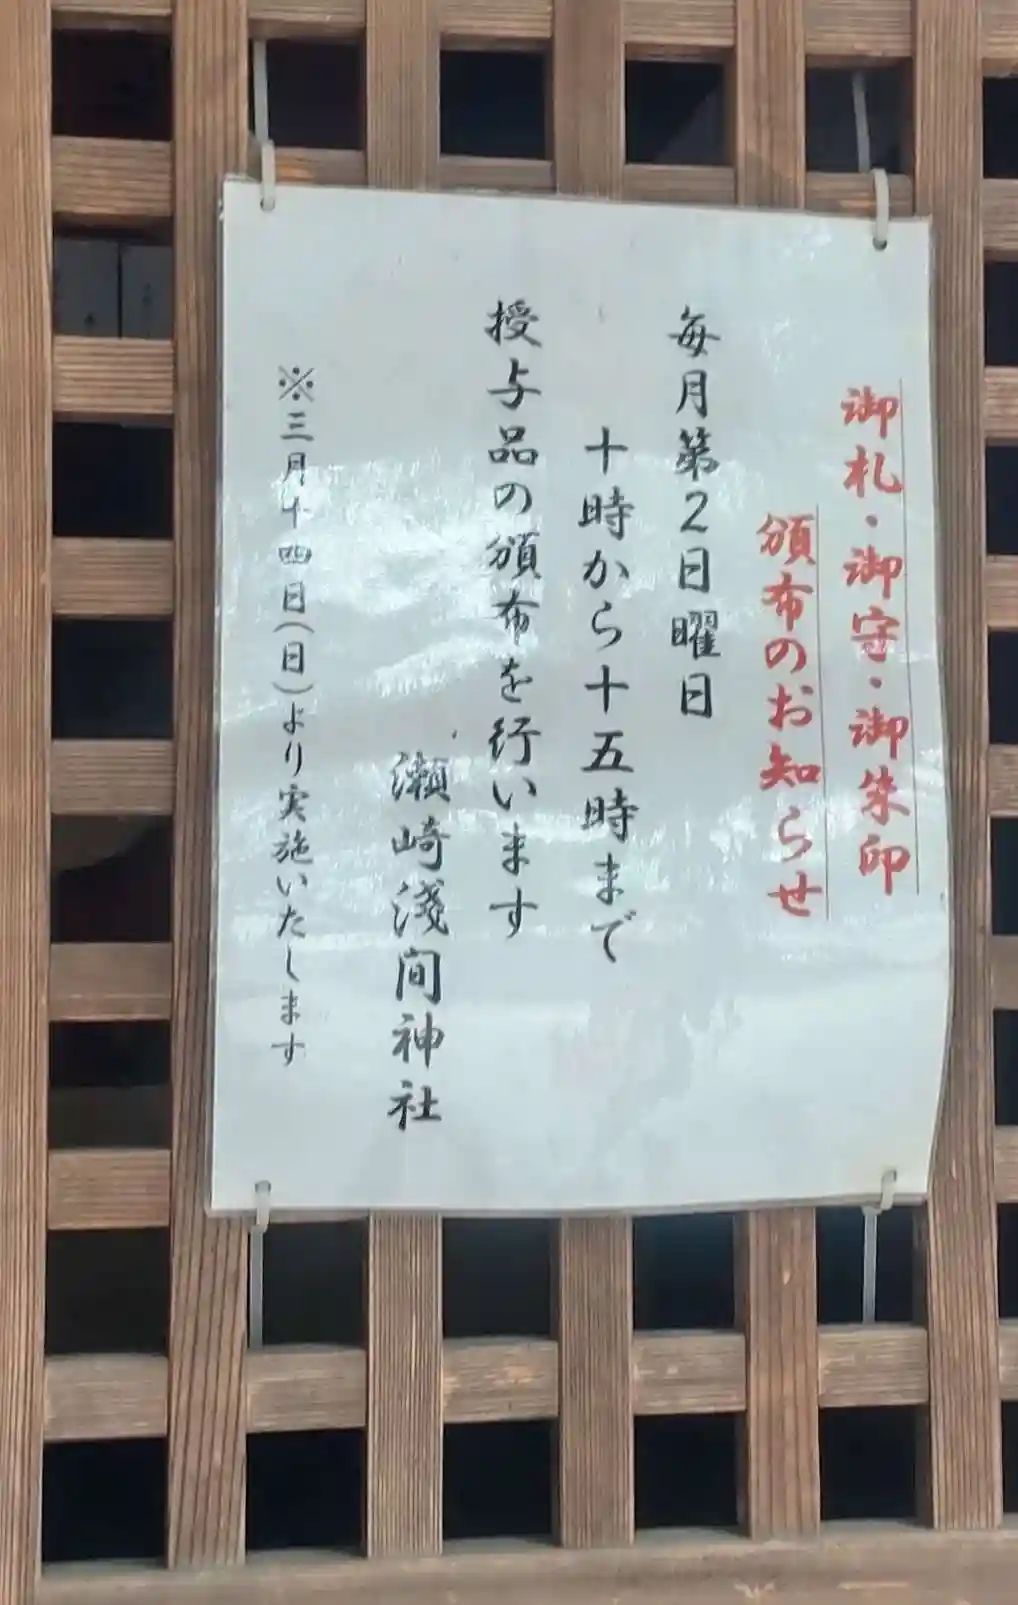 御札・御守・御朱印
頒布のお知らせ
毎月第2日曜日
十時から十五時まで
授与品の頒布を行います
瀬崎淺間神社
※三月十四日(日)より実施いたします